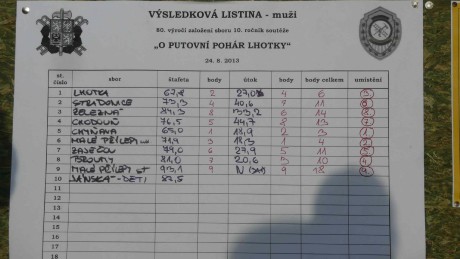 VÝSLEDKOVÁ LISTINA - muži
80. výročí založení sboru 10. ročník soutěže
"O PUTOVNÍ POHÁR LHOTKY"
24. 8. 2013
st. číslo sbor štafeta body útok body body celkem umístění
1 LHOTKA 67,8 2 27,0 4 6 3
2 STRADONICE 73,3 4 40,6 7 11
3 ŽELEZNÁ 84,3 8 133,2 6 14 8
4 CHODOUŇ 76,5 5 44,7 8 13 7
5 CHYŇAVA 65,0 1 18,9 2 3 1
6 MALÉ PŘÍLEPY 71,9 3 18,3 1 4 2
7 ZAJEČOV 79,0 6 27,9 5 11 5
8 BROUMY 81,0 7 20,6 3 10 4
9 MALÉ PŘÍLEPY ST 93,1 9 N 9 18 9
10 DĚTI 82,5
11
12
13
14
15
16
17
18